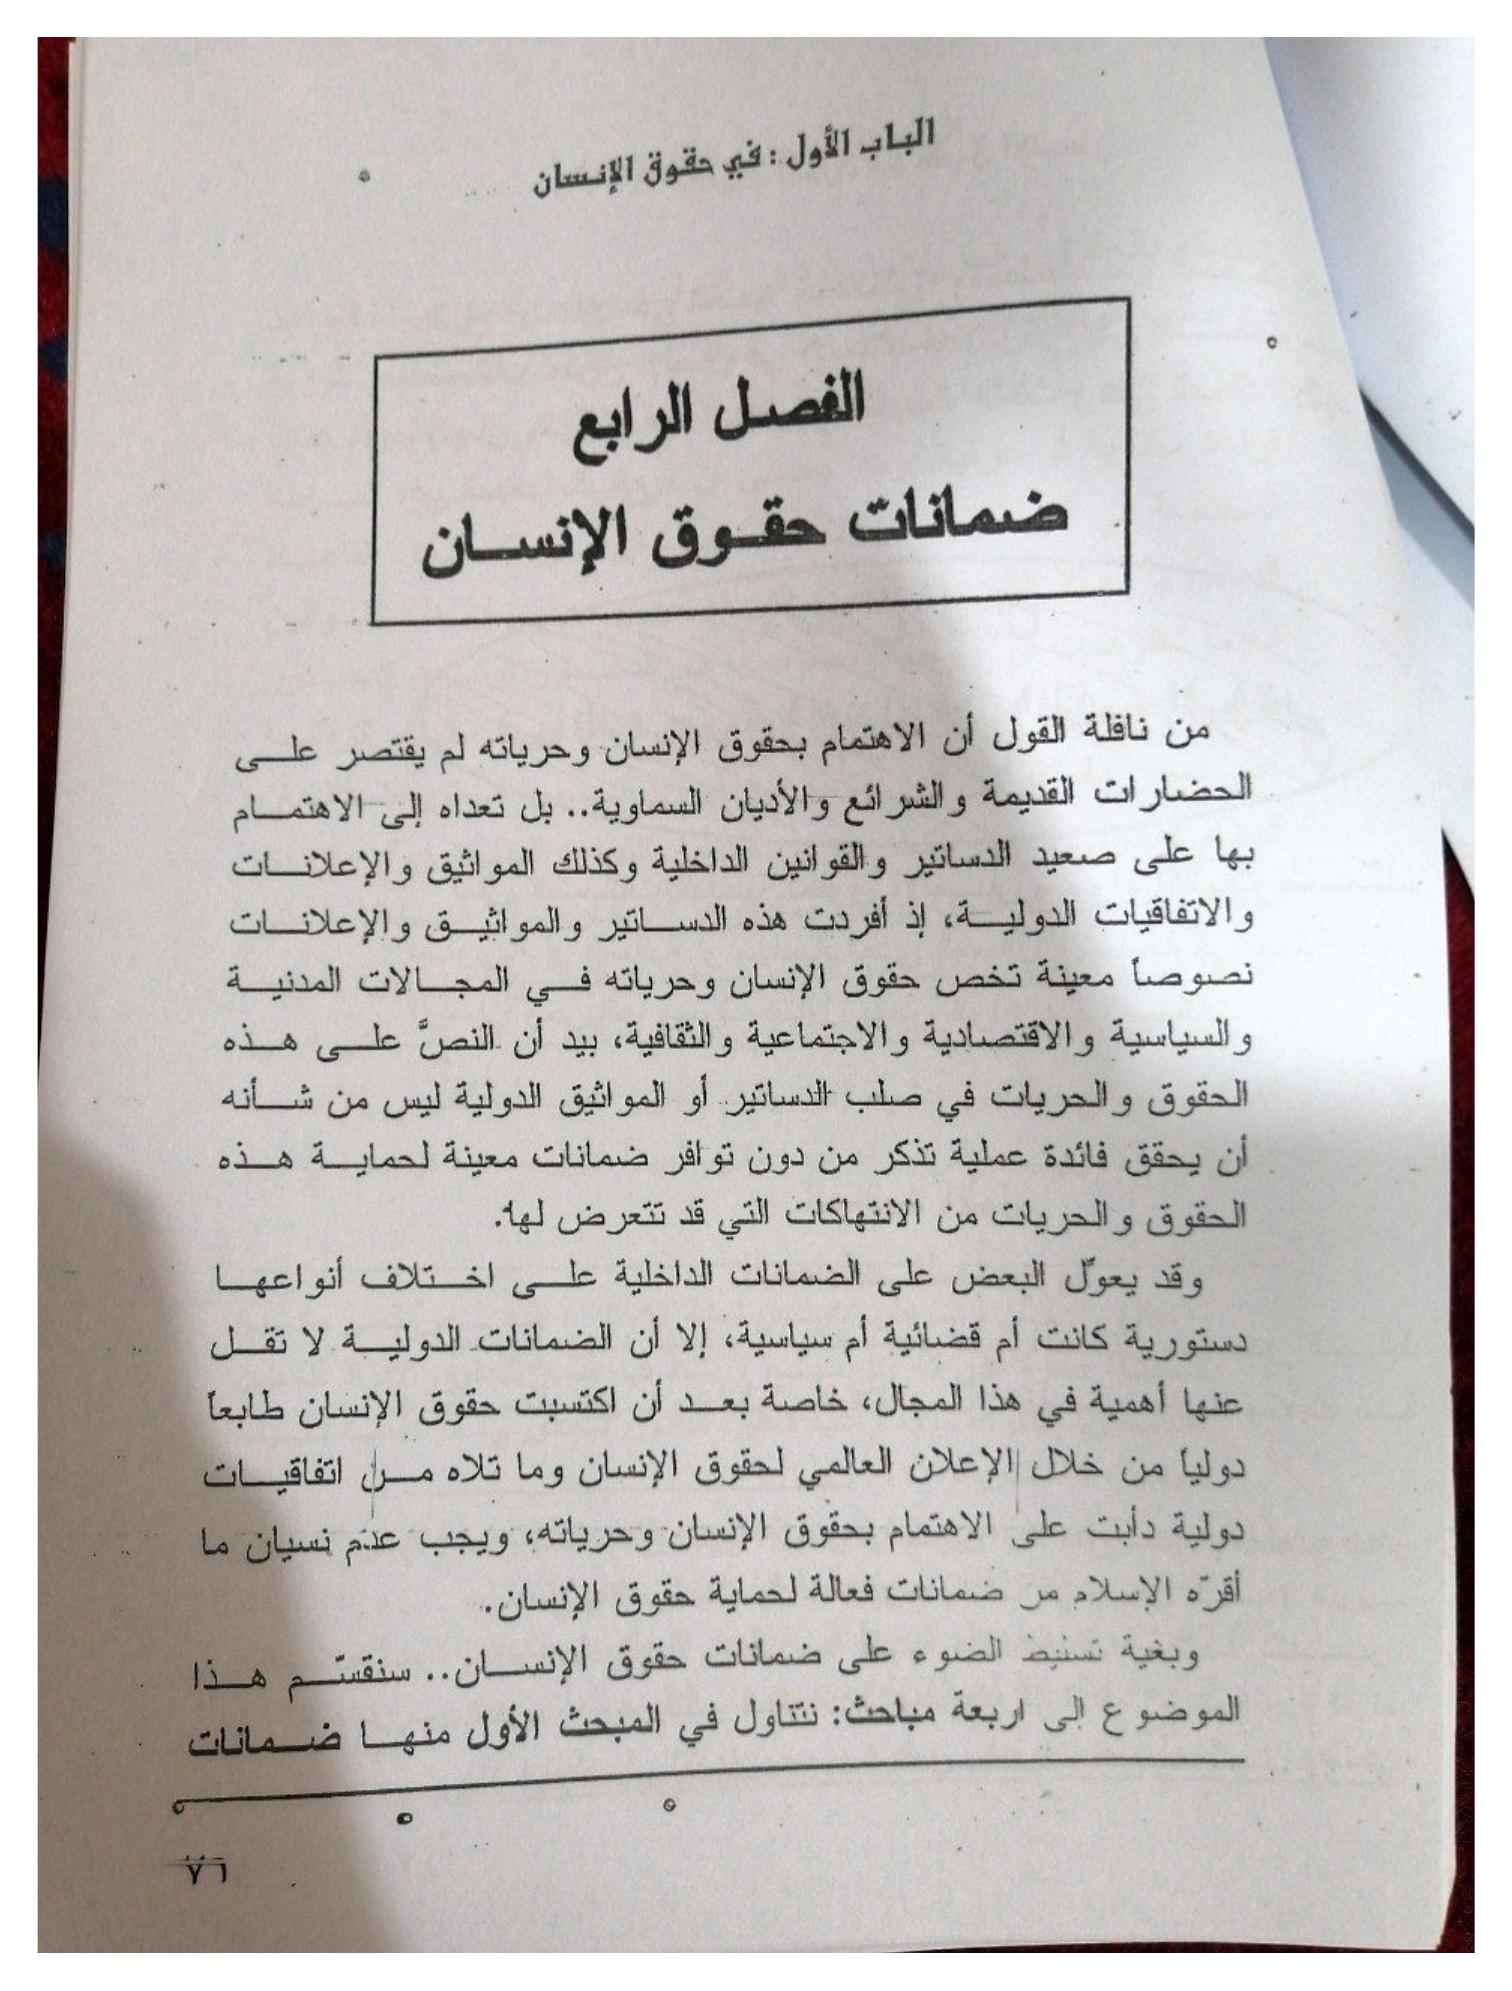 الباب الأول : في حقوق الإنسان
الفصل الرابع
ضمانات حقوق الإنسان
من نافلة القول أن الاهتمام بحقوق الإنسان وحرياته لم يقتصر على
الحضارات القديمة والشرائع والأديان السماوية.. بل تعداه إلى الاهتمام
بها على صعيد الدساتير والقوانين الداخلية وكذلك المواثيق والإعلانات
والاتفاقيات الدولية، إذ أفردت هذه الدساتير والمواثيق والإعلانات
نصوصاً معينة تخص حقوق الإنسان وحرياته في المجالات المدنية
والسياسية والاقتصادية والاجتماعية والثقافية، بيد أن النصَّ على هذه
الحقوق والحريات في صلب الدساتير أو المواثيق الدولية ليس من شأنه
أن يحقق فائدة عملية تذكر من دون توافر ضمانات معينة لحماية هذه
الحقوق والحريات من الانتهاكات التي قد تتعرض لها.
وقد يعوّل البعض على الضمانات الداخلية على اختلاف أنواعها
دستورية كانت أم قضائية أم سياسية، إلا أن الضمانات الدولية لا تقل
عنها أهمية في هذا المجال، خاصة بعد أن اكتسبت حقوق الإنسان طابعاً
دولياً من خلال الإعلان العالمي لحقوق الإنسان وما تلاه من اتفاقيات
دولية دأبت على الاهتمام بحقوق الإنسان وحرياته، ويجب عدم نسيان ما
أقرّه الإسلام من ضمانات فعالة لحماية حقوق الإنسان.
وبغية تسليط الضوء على ضمانات حقوق الإنسان.. سنقسّم هذا
الموضوع إلى اربعة مباحث: نتناول في المبحث الأول منها ضمانات
٧٦